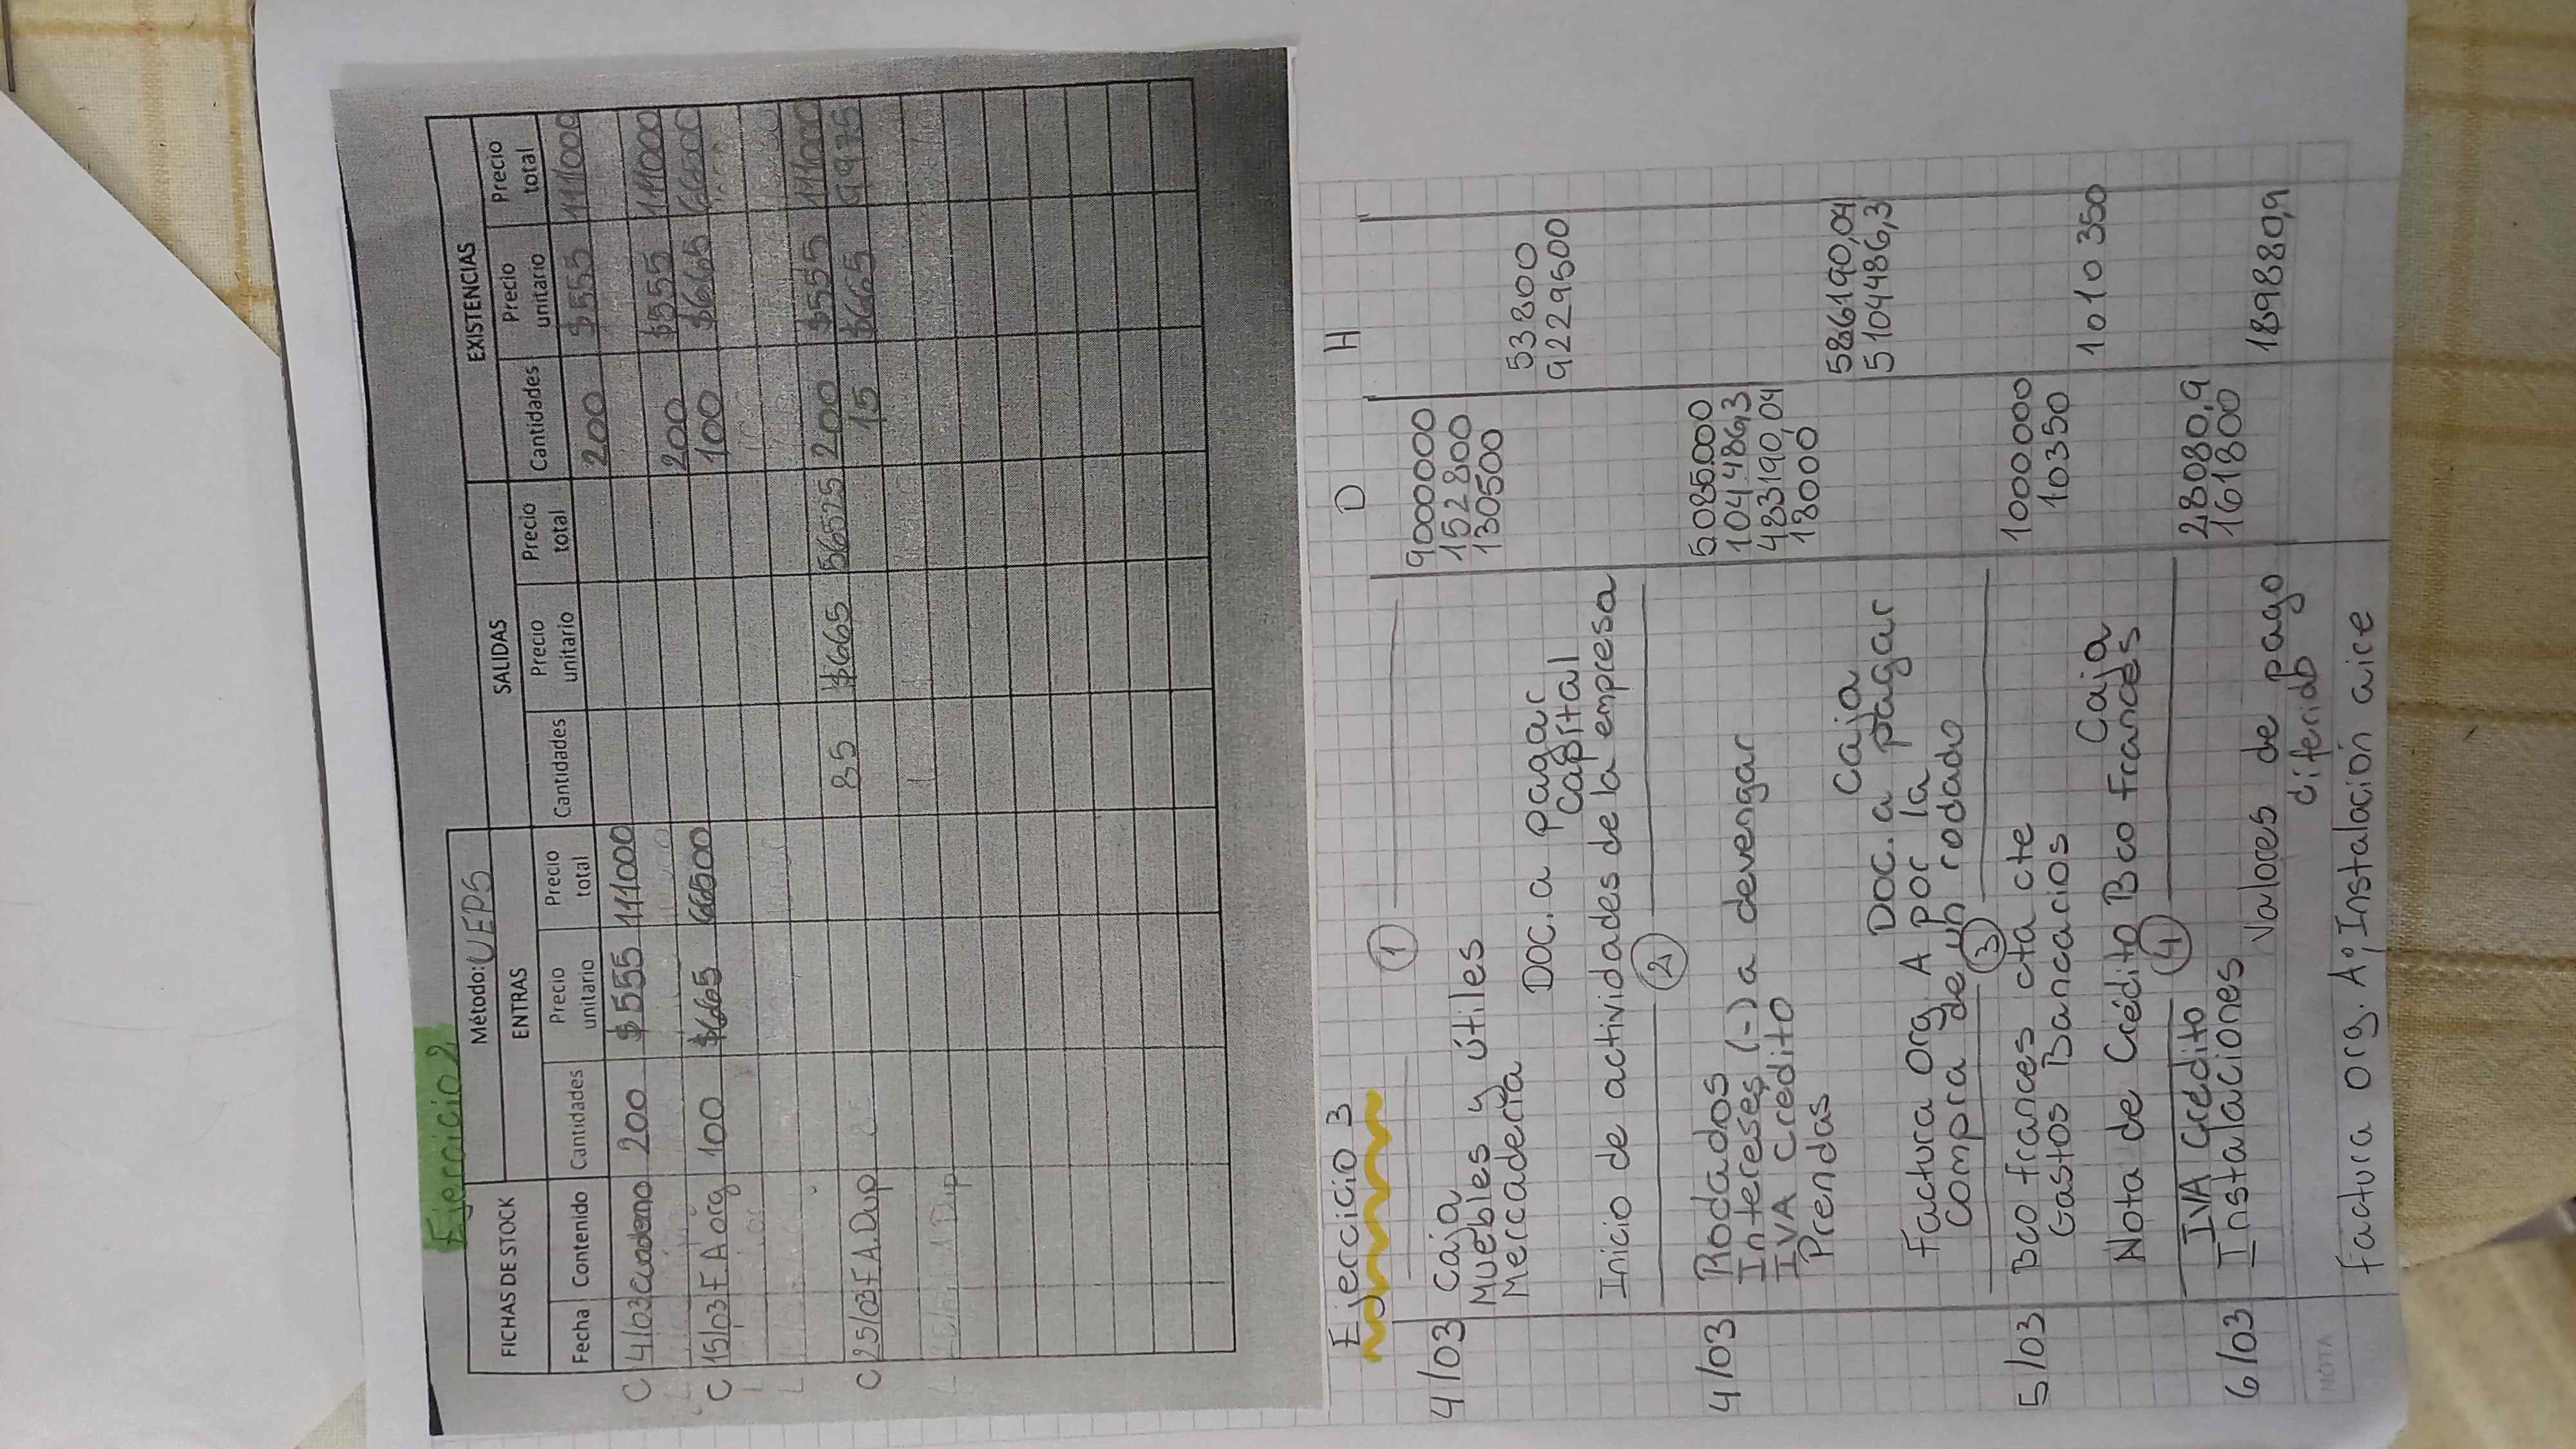 Ejercicio 2
FICHAS DE STOCK Método: UEPS
ENTRAS SALIDAS EXISTENCIAS
Fecha Contenido Cantidades Precio unitario Precio total Cantidades Precio unitario Precio total Cantidades Precio unitario Precio total
C 4/03 Cuaderno 200 $555 111000 200 $555 111000
200 $555 111000
C 15/03 F A org 100 $665 66500 100 $665 66500
200 $555 111000
C 25/03 F A. Dup 85 $665 56525 15 $665 9975
Ejercicio 3
D H
1
4/03 Caja 9000000
Muebles y útiles 152800
Mercadería 130500
Doc. a pagar 53800
Capital 9229500
Inicio de actividades de la empresa
2
4/03 Rodados 5.085.000
Intereses (-) a devengar 104.486,3
IVA Crédito 483190,04
Prendas 18000
Caja 586190,04
Doc. a pagar 5104486,3
Factura Org A por la
compra de un rodado
3
5/03 Bco frances cta cte 1000.000
Gastos Bancarios 10350
Caja 1010350
Nota de Crédito Bco Francés
4
IVA Crédito 28080,9
6/03 Instalaciones 161800
Valores de pago 189880,9
diferido
Factura org. A; Instalación aire
NOTA